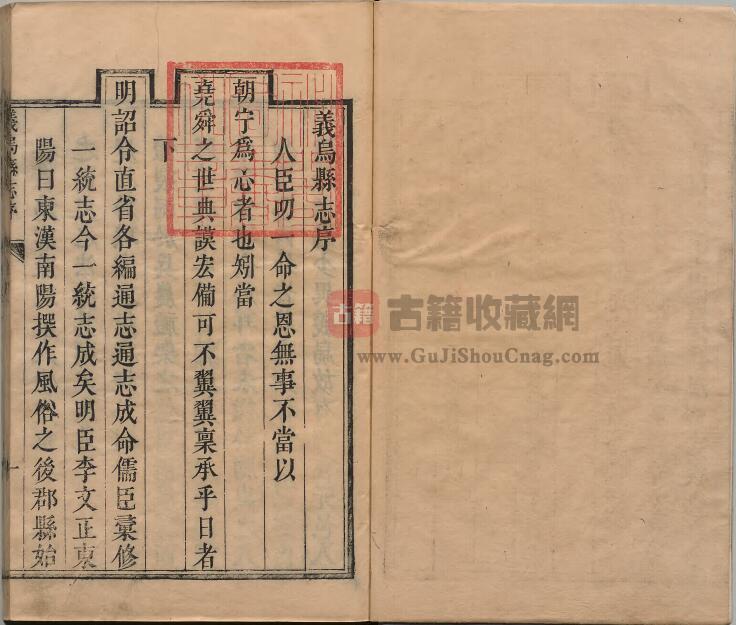 義烏縣志序
人臣叨一命之恩無事不當以
朝宁爲心者也矧當
堯舜之世典謨宏備可不翼翼稟承乎日者
下
明詔令直省各編通志通志成命儒臣彙修
一統志今一統志成矣明臣李文正東
陽曰東漢南陽撰作風俗之後郡縣始
義烏縣志序
一
古籍 古籍收藏網
www.GuJiShouCnag.com